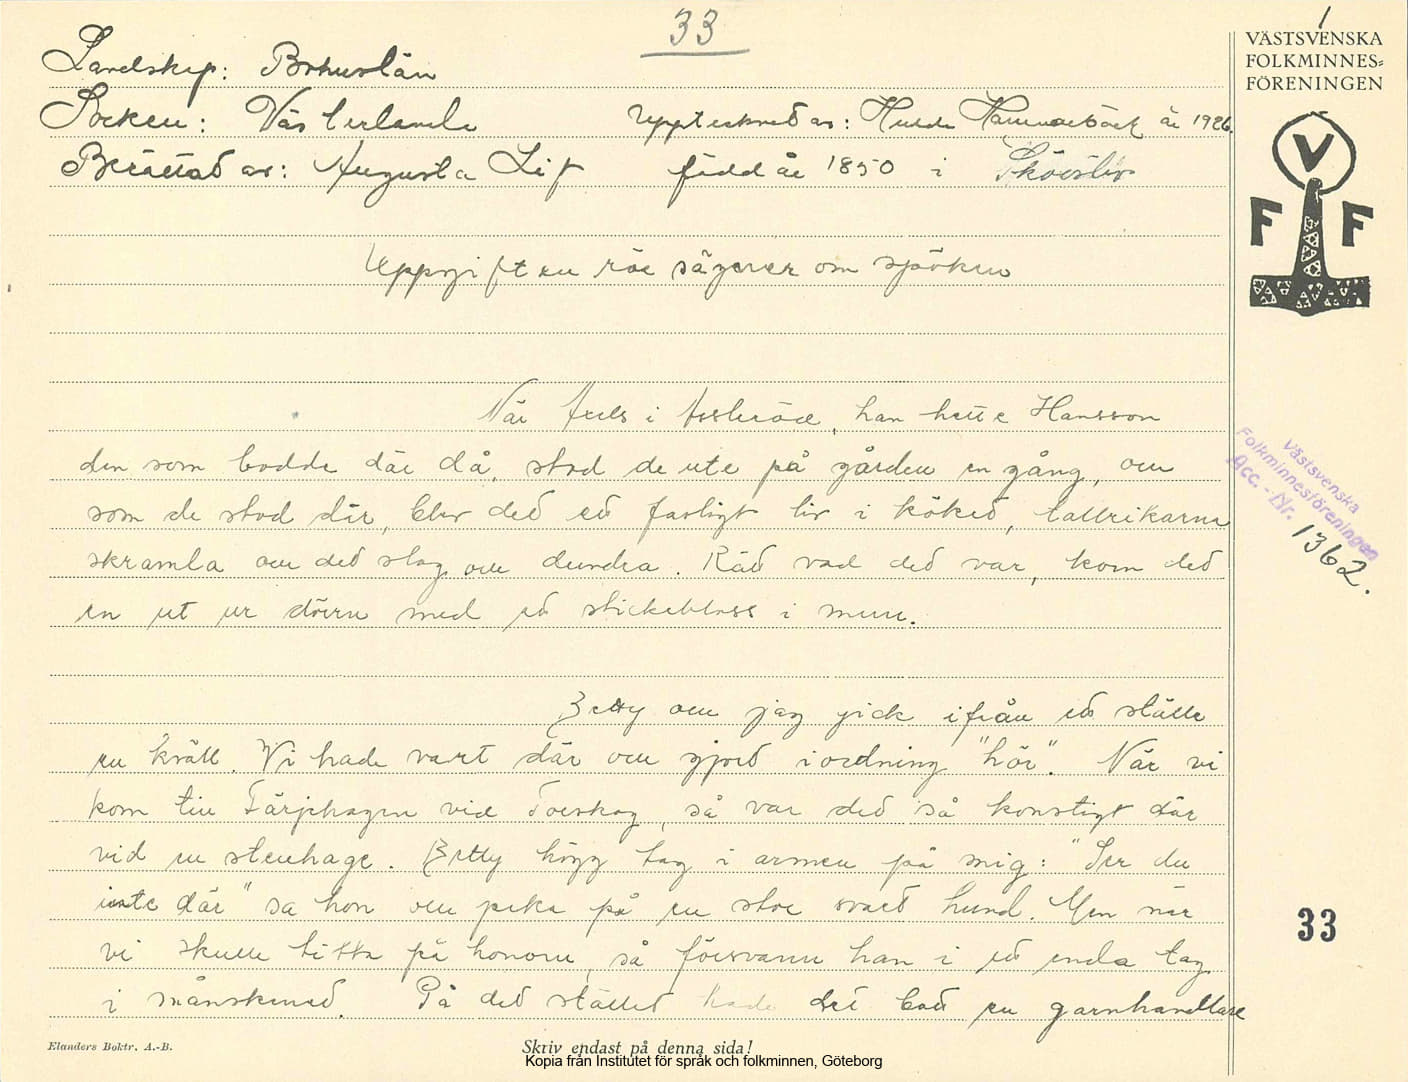 33
1
VÄSTSVENSKA
FOLKMINNES=
FÖRENINGEN
V
F F
Landskap: Bohuslän
Socken: Västerlanda Upptecknad av: Hulda Hammarbäck år 1926.
Berättad av: Augusta Lif född år 1850 i
Uppgifter rör sägner om spöken
När Axels i , han hette Hansson
den som bodde där då, stod de ute på gården en gång, ou
som de stod där, blev ded ed farligt liv i köked, tallrikarna
skramla ou ded slog ou dundra. Räd vad ded var, kom ded
en ut ur dörrn med ed stickebloss i mun.
Betty ou jag gick ifrån ed ställe
en kväll. Vi hade vart där ou gjord iordning "hör". När vi
kom till Färjehagen vid Torskog, så var ded så konstigt där
vid en stenhage. Betty högg tag i armen på mig: "Ser du
inte där" sa hon ou peka på en stor svart hund. Men när
vi skulle titta på honom, så försvann han i ed enda tag
i månskened. På ded ställed hade det bott en garnhandlare
Västsvenska
Folkminnesföreningen
Acc.-Nr. 1362.
33
Elanders Boktr. A.-B.
Skriv endast på denna sida!
Kopia från Institutet för språk och folkminnen, Göteborg